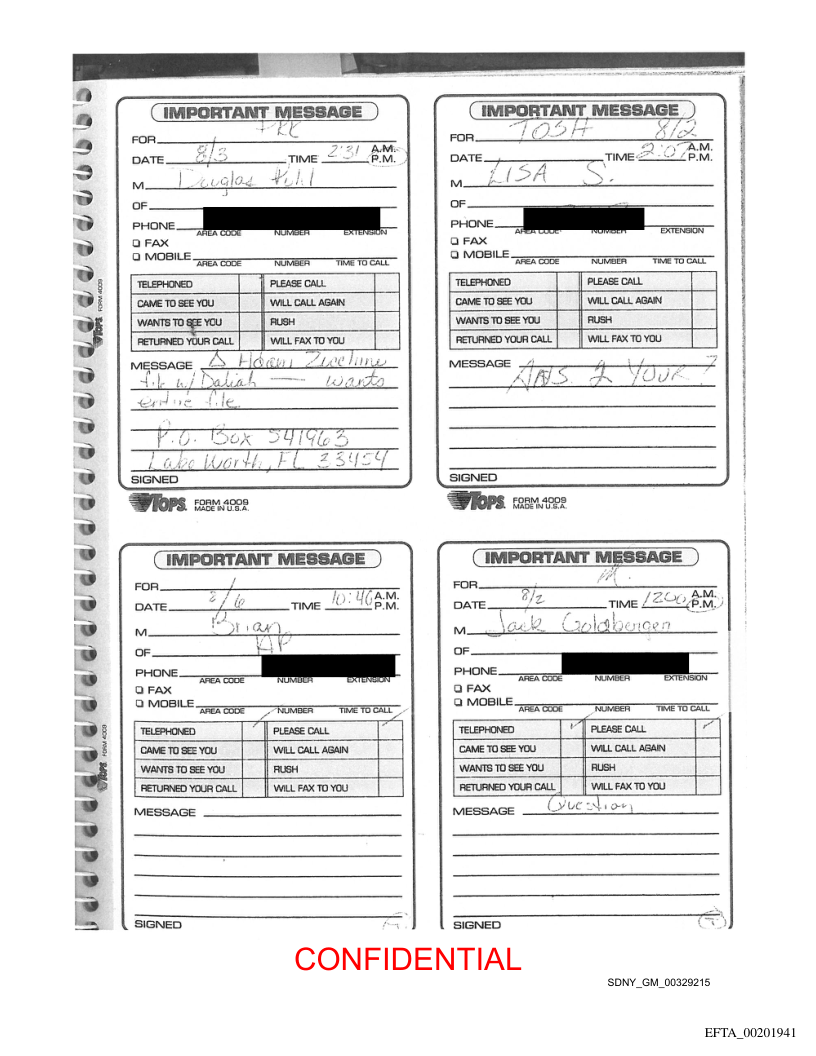 IMPORTANT MESSAGE
FOR
DATE 8/3 TIME 2:31 A.M. P.M.
M Douglas
OF
PHONE
AREA CODE NUMBER EXTENSION
FAX
MOBILE
AREA CODE NUMBER TIME TO CALL
TELEPHONED PLEASE CALL
CAME TO SEE YOU WILL CALL AGAIN
WANTS TO SEE YOU RUSH
RETURNED YOUR CALL WILL FAX TO YOU
MESSAGE
file w/ Daliah — wants
entire file
P.O. Box 541963
Lake Worth, FL 33454
SIGNED
TOPS FORM 4009
MADE IN U.S.A.
IMPORTANT MESSAGE
FOR TOSH 8/2
DATE TIME 2:07 A.M. P.M.
M LISA S.
OF
PHONE
AREA CODE NUMBER EXTENSION
FAX
MOBILE
AREA CODE NUMBER TIME TO CALL
TELEPHONED PLEASE CALL
CAME TO SEE YOU WILL CALL AGAIN
WANTS TO SEE YOU RUSH
RETURNED YOUR CALL WILL FAX TO YOU
MESSAGE ANS 2 YOUR ?
SIGNED
TOPS FORM 4009
MADE IN U.S.A.
IMPORTANT MESSAGE
FOR
DATE 8/6 TIME 10:46 A.M. P.M.
M Brian
OF
PHONE
AREA CODE NUMBER EXTENSION
FAX
MOBILE
AREA CODE NUMBER TIME TO CALL
TELEPHONED PLEASE CALL
CAME TO SEE YOU WILL CALL AGAIN
WANTS TO SEE YOU RUSH
RETURNED YOUR CALL WILL FAX TO YOU
MESSAGE
SIGNED
IMPORTANT MESSAGE
FOR M.
DATE 8/2 TIME 1200 A.M. P.M.
M Jack Goldberger
OF
PHONE
AREA CODE NUMBER EXTENSION
FAX
MOBILE
AREA CODE NUMBER TIME TO CALL
TELEPHONED PLEASE CALL
CAME TO SEE YOU WILL CALL AGAIN
WANTS TO SEE YOU RUSH
RETURNED YOUR CALL WILL FAX TO YOU
MESSAGE Question
SIGNED
TOPS FORM 4009
TOPS FORM 4009
CONFIDENTIAL
SDNY_GM_00329215
EFTA_00201941